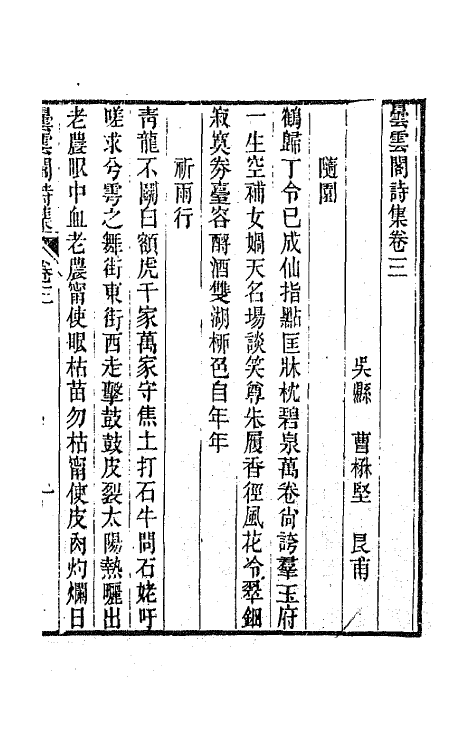 曇雲閣詩集卷三
吳縣　曹楙堅　艮甫
隨園
鶴歸丁令已成仙指點匡牀枕碧泉萬卷尙誇羣玉府
一生空補女媧天名場談笑尊朱履香徑風花冷翠鈿
寂寞劵臺容酹酒雙湖栁色自年年
祈雨行
靑龍不鬭白額虎千家萬家守焦土打石牛問石姥吁
嗟求兮雩之舞街東街西走擊鼓鼓皮裂太陽熱驪出
老農眼中血老農甯使眼枯苗勿枯甯使皮肉灼爛日
曇雲閣詩集　卷三　一